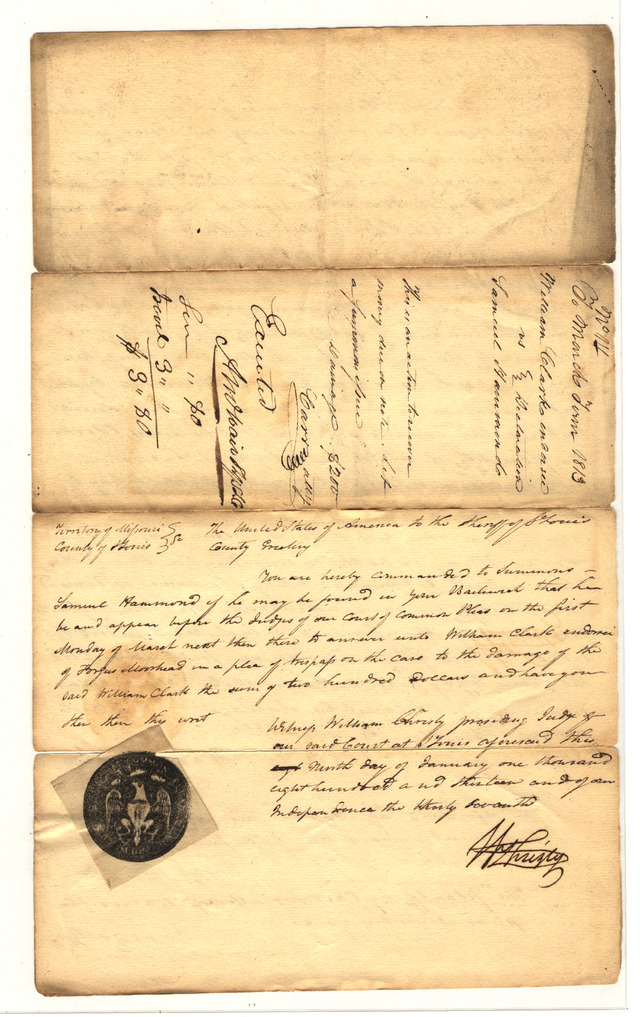 No 41
To March Term 1813
William Clark endorsee
vs } Declaration
Samuel Hammond
This is an action to recover
money due on note
Damage $200
Carr atty
Executed
A McNair Shff
Ser " 80
Travl 3 " "
$ 3 " 80
Territory of Missouri }
County of St Louis } Sc
The United States of America to the Sheriff of St Louis
County Greeting
You are hereby commanded to Summons
Samuel Hammond if he may be found in your Bailiwick that he
be and appear before the Judges of our Court of Common Pleas on the first
Monday of March next then there to answer unto William Clark endorsee
of Fergus Moorhead in a plea of trespass on the case to the damage of the
said William Clark the sum of two hundred Dollars and have you
then there this writ
Witness William Christy presiding Judge of
our said Court at St Louis aforesaid this
Ninth day of January one thousand
eight hundred and thirteen and of our
Independence the thirty seventh
Wm Christy